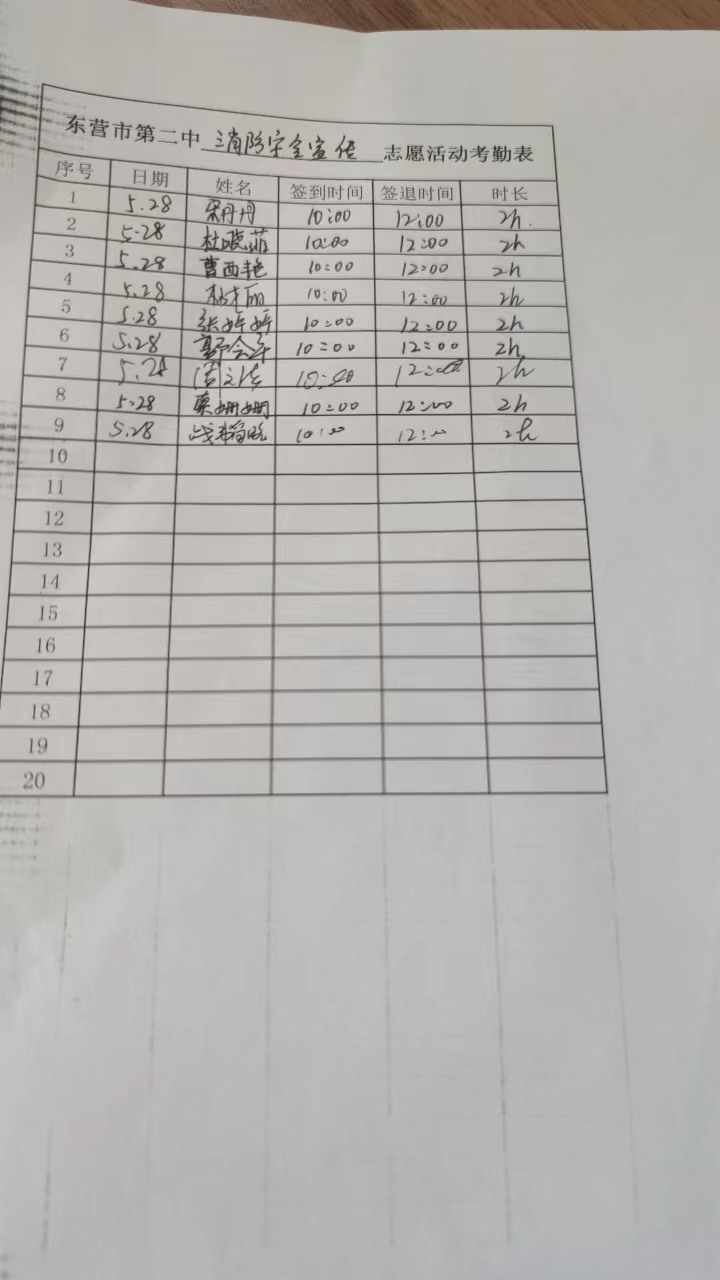 东营市第二中 消防安全宣传 志愿活动考勤表
序号 日期 姓名 签到时间 签退时间 时长
1 5.28 宋丹丹 10:00 12:00 2h
2 5.28 杜晓菲 10:00 12:00 2h
3 5.28 曹西艳 10:00 12:00 2h
4 5.28 10:00 12:00 2h
5 5.28 张婷婷 10:00 12:00 2h
6 5.28 10:00 12:00 2h
7 5.28 10:00 12:00 2h
8 5.28 姗姗 10:00 12:00 2h
9 5.28 10:00 12:00 2h
10
11
12
13
14
15
16
17
18
19
20